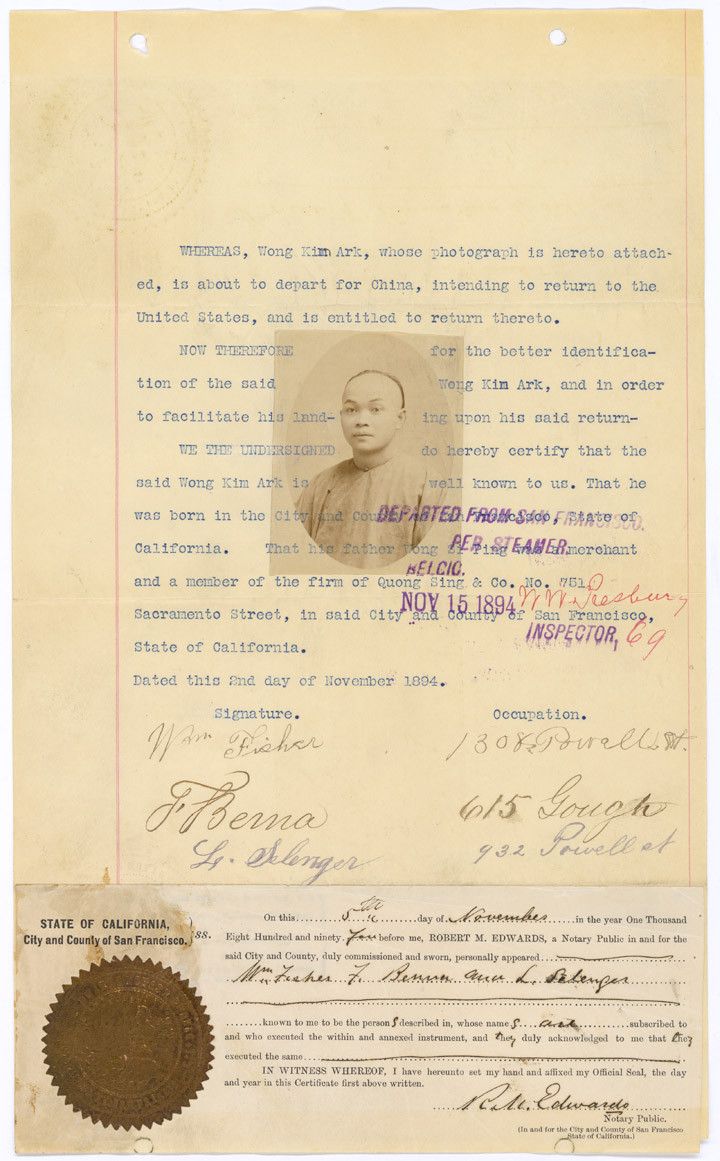 WHEREAS, Wong Kim Ark, whose photograph is hereto attach-
ed, is about to depart for China, intending to return to the
United States, and is entitled to return thereto.
NOW THEREFORE for the better identifica-
tion of the said Wong Kim Ark, and in order
to facilitate his land- ing upon his said return-
WE THE UNDERSIGNED do hereby certify that the
said Wong Kim Ark is well known to us. That he
was born in the City and County of San Francisco, State of
California. That his father Wong Si Ping was a merchant
and a member of the firm of Quong Sing & Co. No. 751
Sacramento Street, in said City and County of San Francisco,
State of California.
Dated this 2nd day of November 1894.
DEPARTED FROM SAN FRANCISCO.
PER STEAMER,
BELGIC.
NOV 15 1894
INSPECTOR, 69
Signature. Occupation.
Wm Fisher 1308 Powell St.
F Berna 615 Gough
L. Selenger 932 Powell st
STATE OF CALIFORNIA,
City and County of San Francisco. } ss.
On this 5th day of November in the year One Thousand
Eight Hundred and ninety Four before me, ROBERT M. EDWARDS, a Notary Public in and for the
said City and County, duly commissioned and sworn, personally appeared
Wm Fisher F. Berna and L. Selenger
known to me to be the persons described in, whose names are subscribed to
and who executed the within and annexed instrument, and they duly acknowledged to me that they
executed the same
IN WITNESS WHEREOF, I have hereunto set my hand and affixed my Official Seal, the day
and year in this Certificate first above written.
R. M. Edwards
Notary Public.
(In and for the City and County of San Francisco
State of California.)